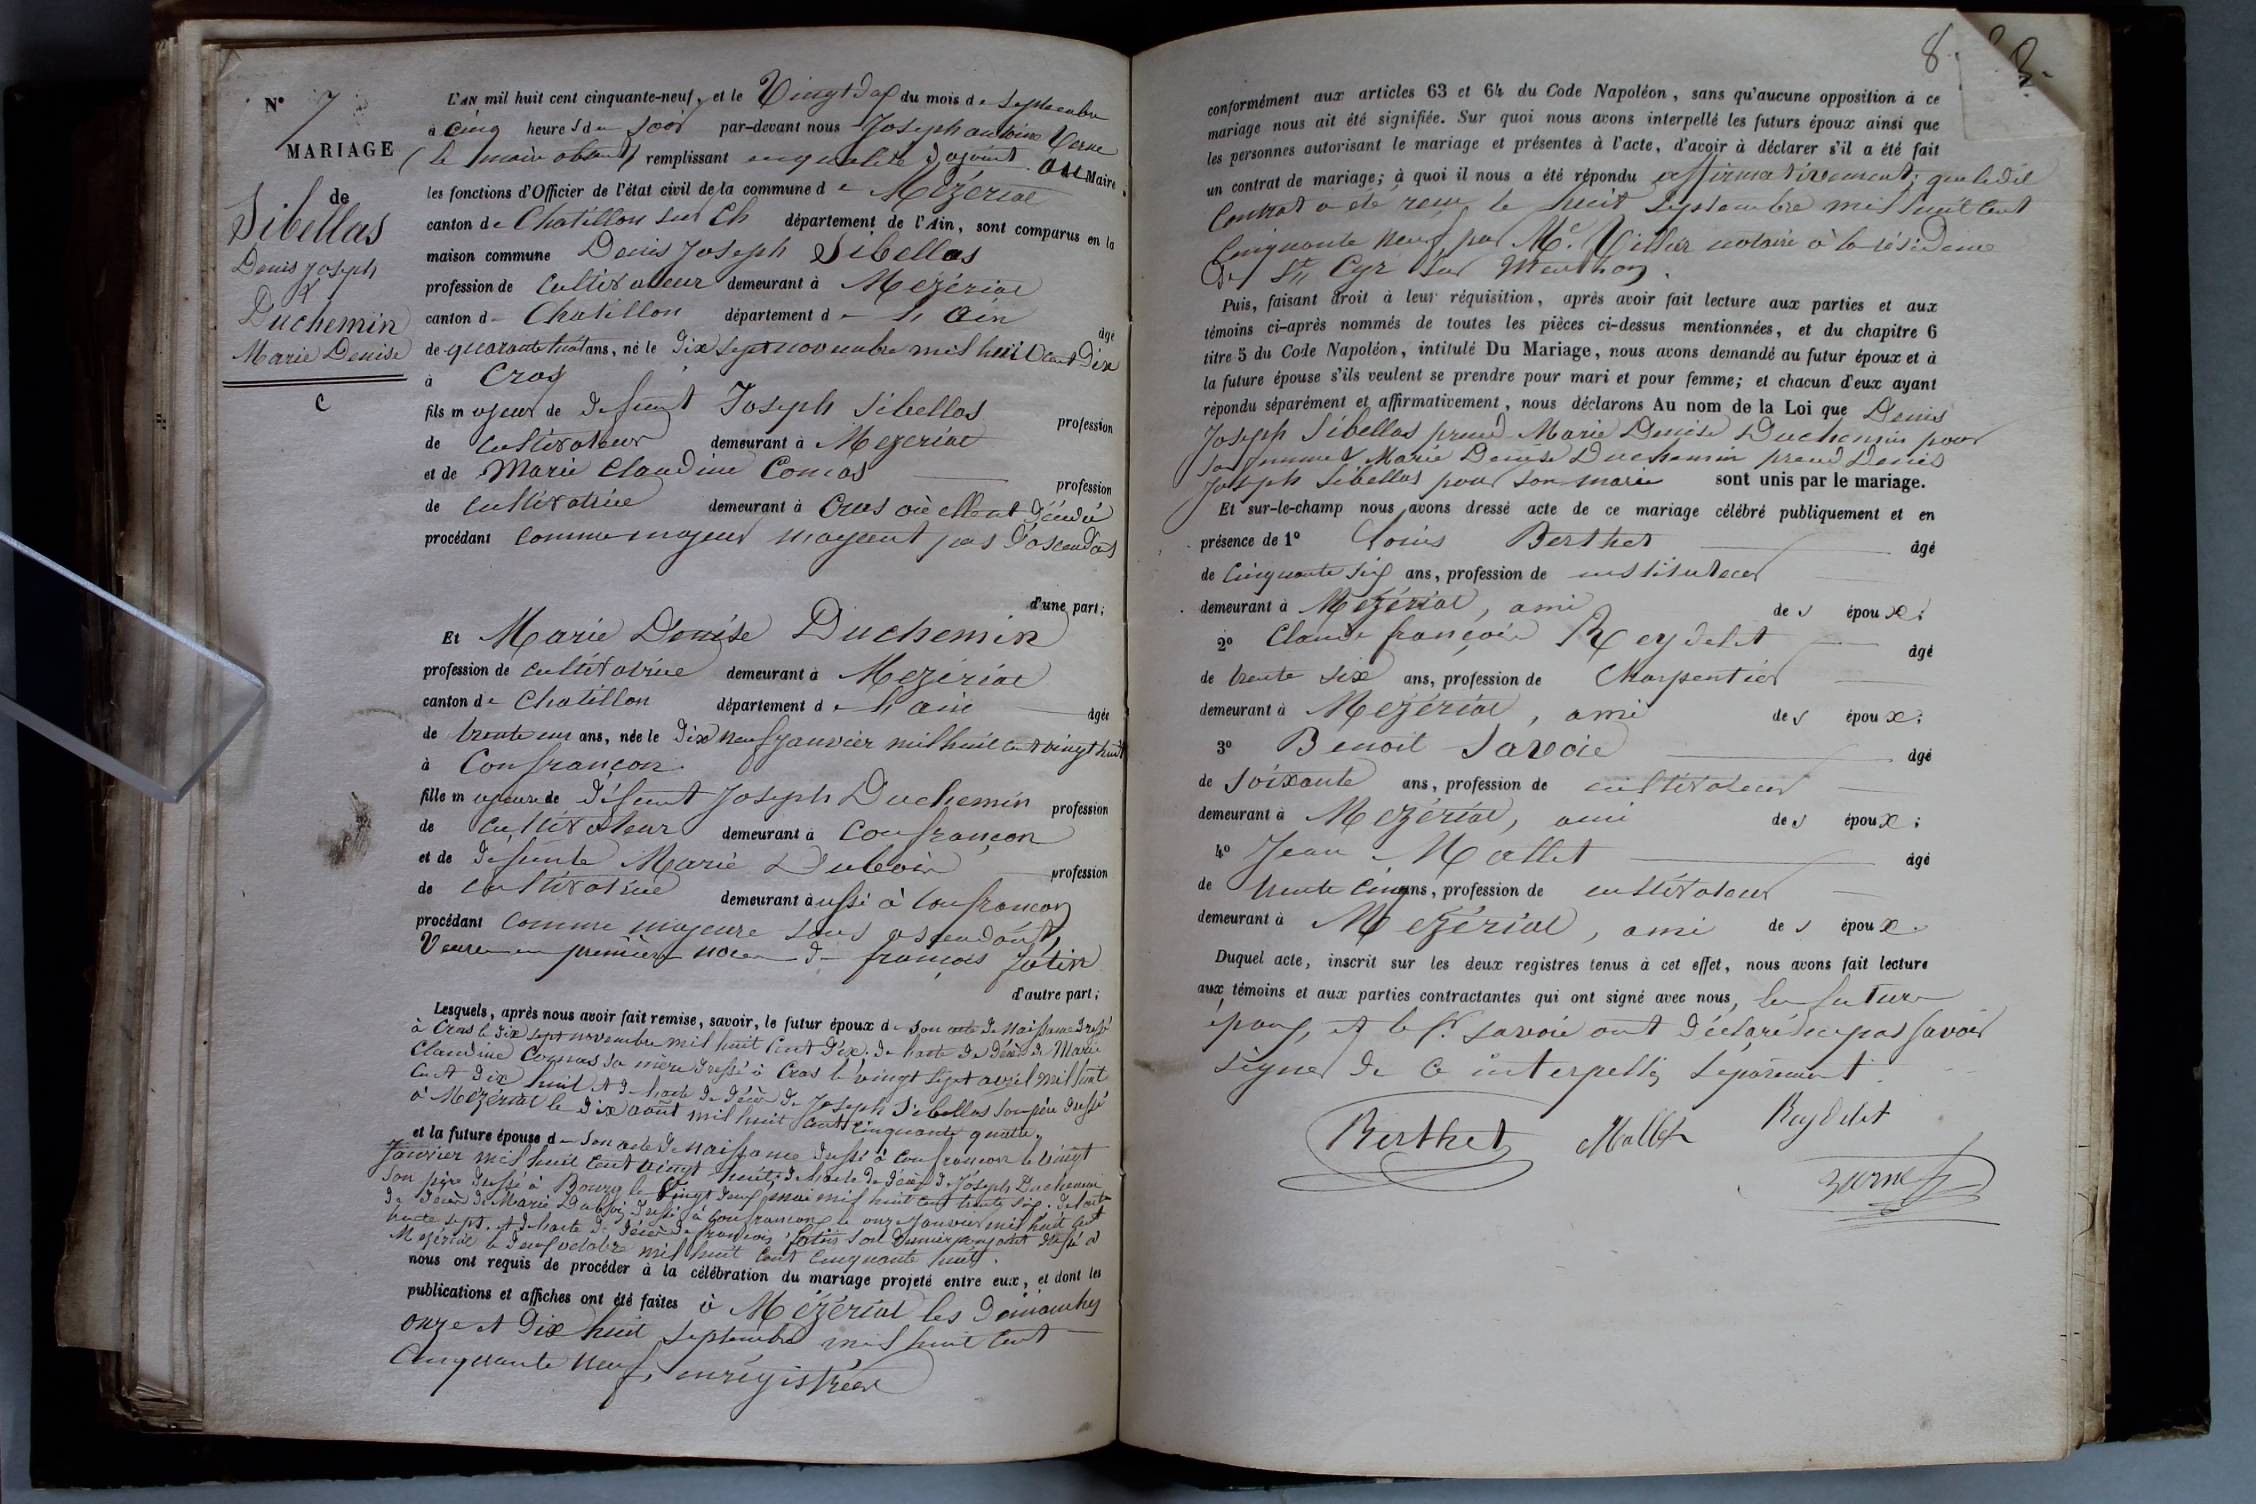 N° 7
MARIAGE
de
Sibellas
Denis Joseph
&
Duchemin
Marie Denise
C
L'AN mil huit cent cinquante-neuf, et le Vingt du mois de Septembre
à cinq heures du soir par-devant nous Joseph antoine Verne
(le maire absent) remplissant en qualité d'adjoint au Maire
les fonctions d'Officier de l'état civil de la commune de Mézériat
canton de Chatillon sur Ch département de l'Ain, sont comparus en la
maison commune Denis Joseph Sibellas
profession de Cultivateur demeurant à Mézériat
canton de Chatillon département de l'ain
âgé
de quarante huit ans, né le dix sept novembre mil huit cent dix
à Cras
fils majeur de défunt Joseph Sibellas
profession
de Cultivateur demeurant à Mezeriat
et de Marie Claudine Comas
profession
de Cultivatrice demeurant à Cras où elle est décédée
procédant comme majeur n'ayant pas d'ascendas
d'une part;
Et Marie Denise Duchemin
profession de Cultivatrice demeurant à Mezériat
canton de Chatillon département de l'ain
âgée
de trente un ans, née le dix neuf janvier mil huit cent vingt huit
à Confrançon
fille majeure de défunt Joseph Duchemin
profession
de Cultivateur demeurant à Confrançon
et de défunte Marie Dubois
profession
de Cultivatrice demeurant aussi à Confrançon
procédant comme majeure sans ascendant,
Veuve en première noce de françois Jatin
d'autre part;
Lesquels, après nous avoir fait remise, savoir, le futur époux de son acte de Naissance dressé
à Cras le dix sept novembre mil huit cent dix. de l'acte de décès de Marie
Claudine Comas sa mère dressé à Cras le vingt sept avril mil huit
cent dix huit et de l'acte de décès de Joseph Sibellas son père dressé
à Mézériat le dix août mil huit cent cinquante quatre.
et la future épouse de son acte de naissance dressé à Confrançon le vingt
Janvier mil huit cent vingt huit; de l'acte de décès de Joseph Duchemin
son père dressé à Bourg le vingt deux mai mil huit cent trente six. de l'acte
de décès de Marie Dubois dressé à Confrançon le onze janvier mil huit cent
trente sept. et de l'acte de décès de françois Jatin son dernier conjoint dressé à
Mezériat le deux octobre mil huit cent cinquante huit.
nous ont requis de procéder à la célébration du mariage projeté entre eux, et dont les
publications et affiches ont été faites à Mézériat les dimanches
onze et dix huit septembre mil huit cent
cinquante neuf, enrégistrées
8.
conformément aux articles 63 et 64 du Code Napoléon, sans qu'aucune opposition à ce
mariage nous ait été signifiée. Sur quoi nous avons interpellé les futurs époux ainsi que
les personnes autorisant le mariage et présentes à l'acte, d'avoir à déclarer s'il a été fait
un contrat de mariage; à quoi il nous a été répondu affirmativement; que ledit
Contrat a été reçu le huit Septembre mil huit cent
Cinquante neuf par Me. notaire à la résidence
de St Cyr sur Menthon.
Puis, faisant droit à leur réquisition, après avoir fait lecture aux parties et aux
témoins ci-après nommés de toutes les pièces ci-dessus mentionnées, et du chapitre 6
titre 5 du Code Napoléon, intitulé Du Mariage, nous avons demandé au futur époux et à
la future épouse s'ils veulent se prendre pour mari et pour femme; et chacun d'eux ayant
répondu séparément et affirmativement, nous déclarons Au nom de la Loi que Denis
Joseph Sibellas prend Marie Denise Duchemin pour
sa femme & Marie Denise Duchemin prend Denis
Joseph Sibellas pour son marie sont unis par le mariage.
Et sur-le-champ nous avons dressé acte de ce mariage célébré publiquement et en
présence de 1° Louis Berthet âgé
de Cinquante six ans, profession de instituteur
demeurant à Mezériat, ami des époux;
2° Claude françois Reydelet âgé
de trente six ans, profession de Charpentier
demeurant à Mezériat, ami des époux;
3° Benoit Savoie âgé
de Soixante ans, profession de cultivateur
demeurant à Mezériat, ami des époux;
4° Jean Mallet âgé
de trente cinq ans, profession de cultivateur
demeurant à Mezériat, ami des époux.
Duquel acte, inscrit sur les deux registres tenus à cet effet, nous avons fait lecture
aux témoins et aux parties contractantes qui ont signé avec nous, les futurs
époux, et le sr. Savoie ont déclaré ne pas savoir
signer de ce interpellés séparément.
Berthet Mallet Reydelet
Verne